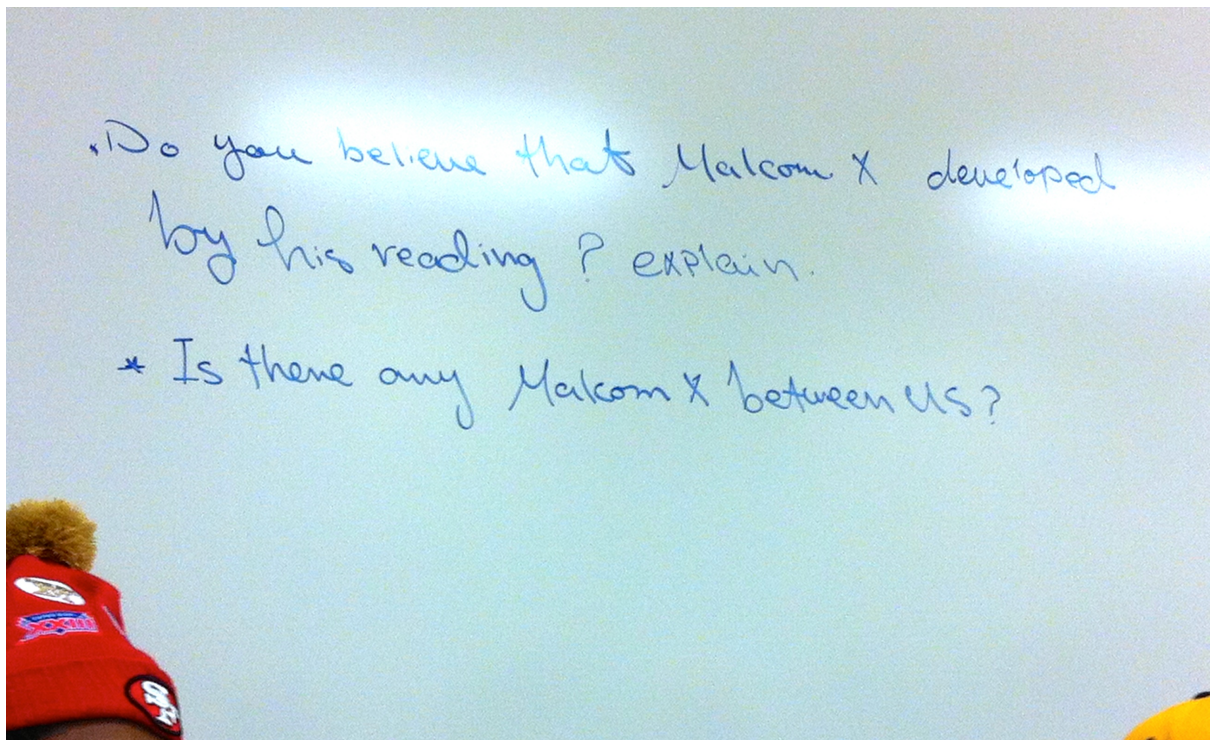 * Do you believe that Malcom X developed
by his reading ? explain.
* Is there any Malcom X between us?
XXIII
SF